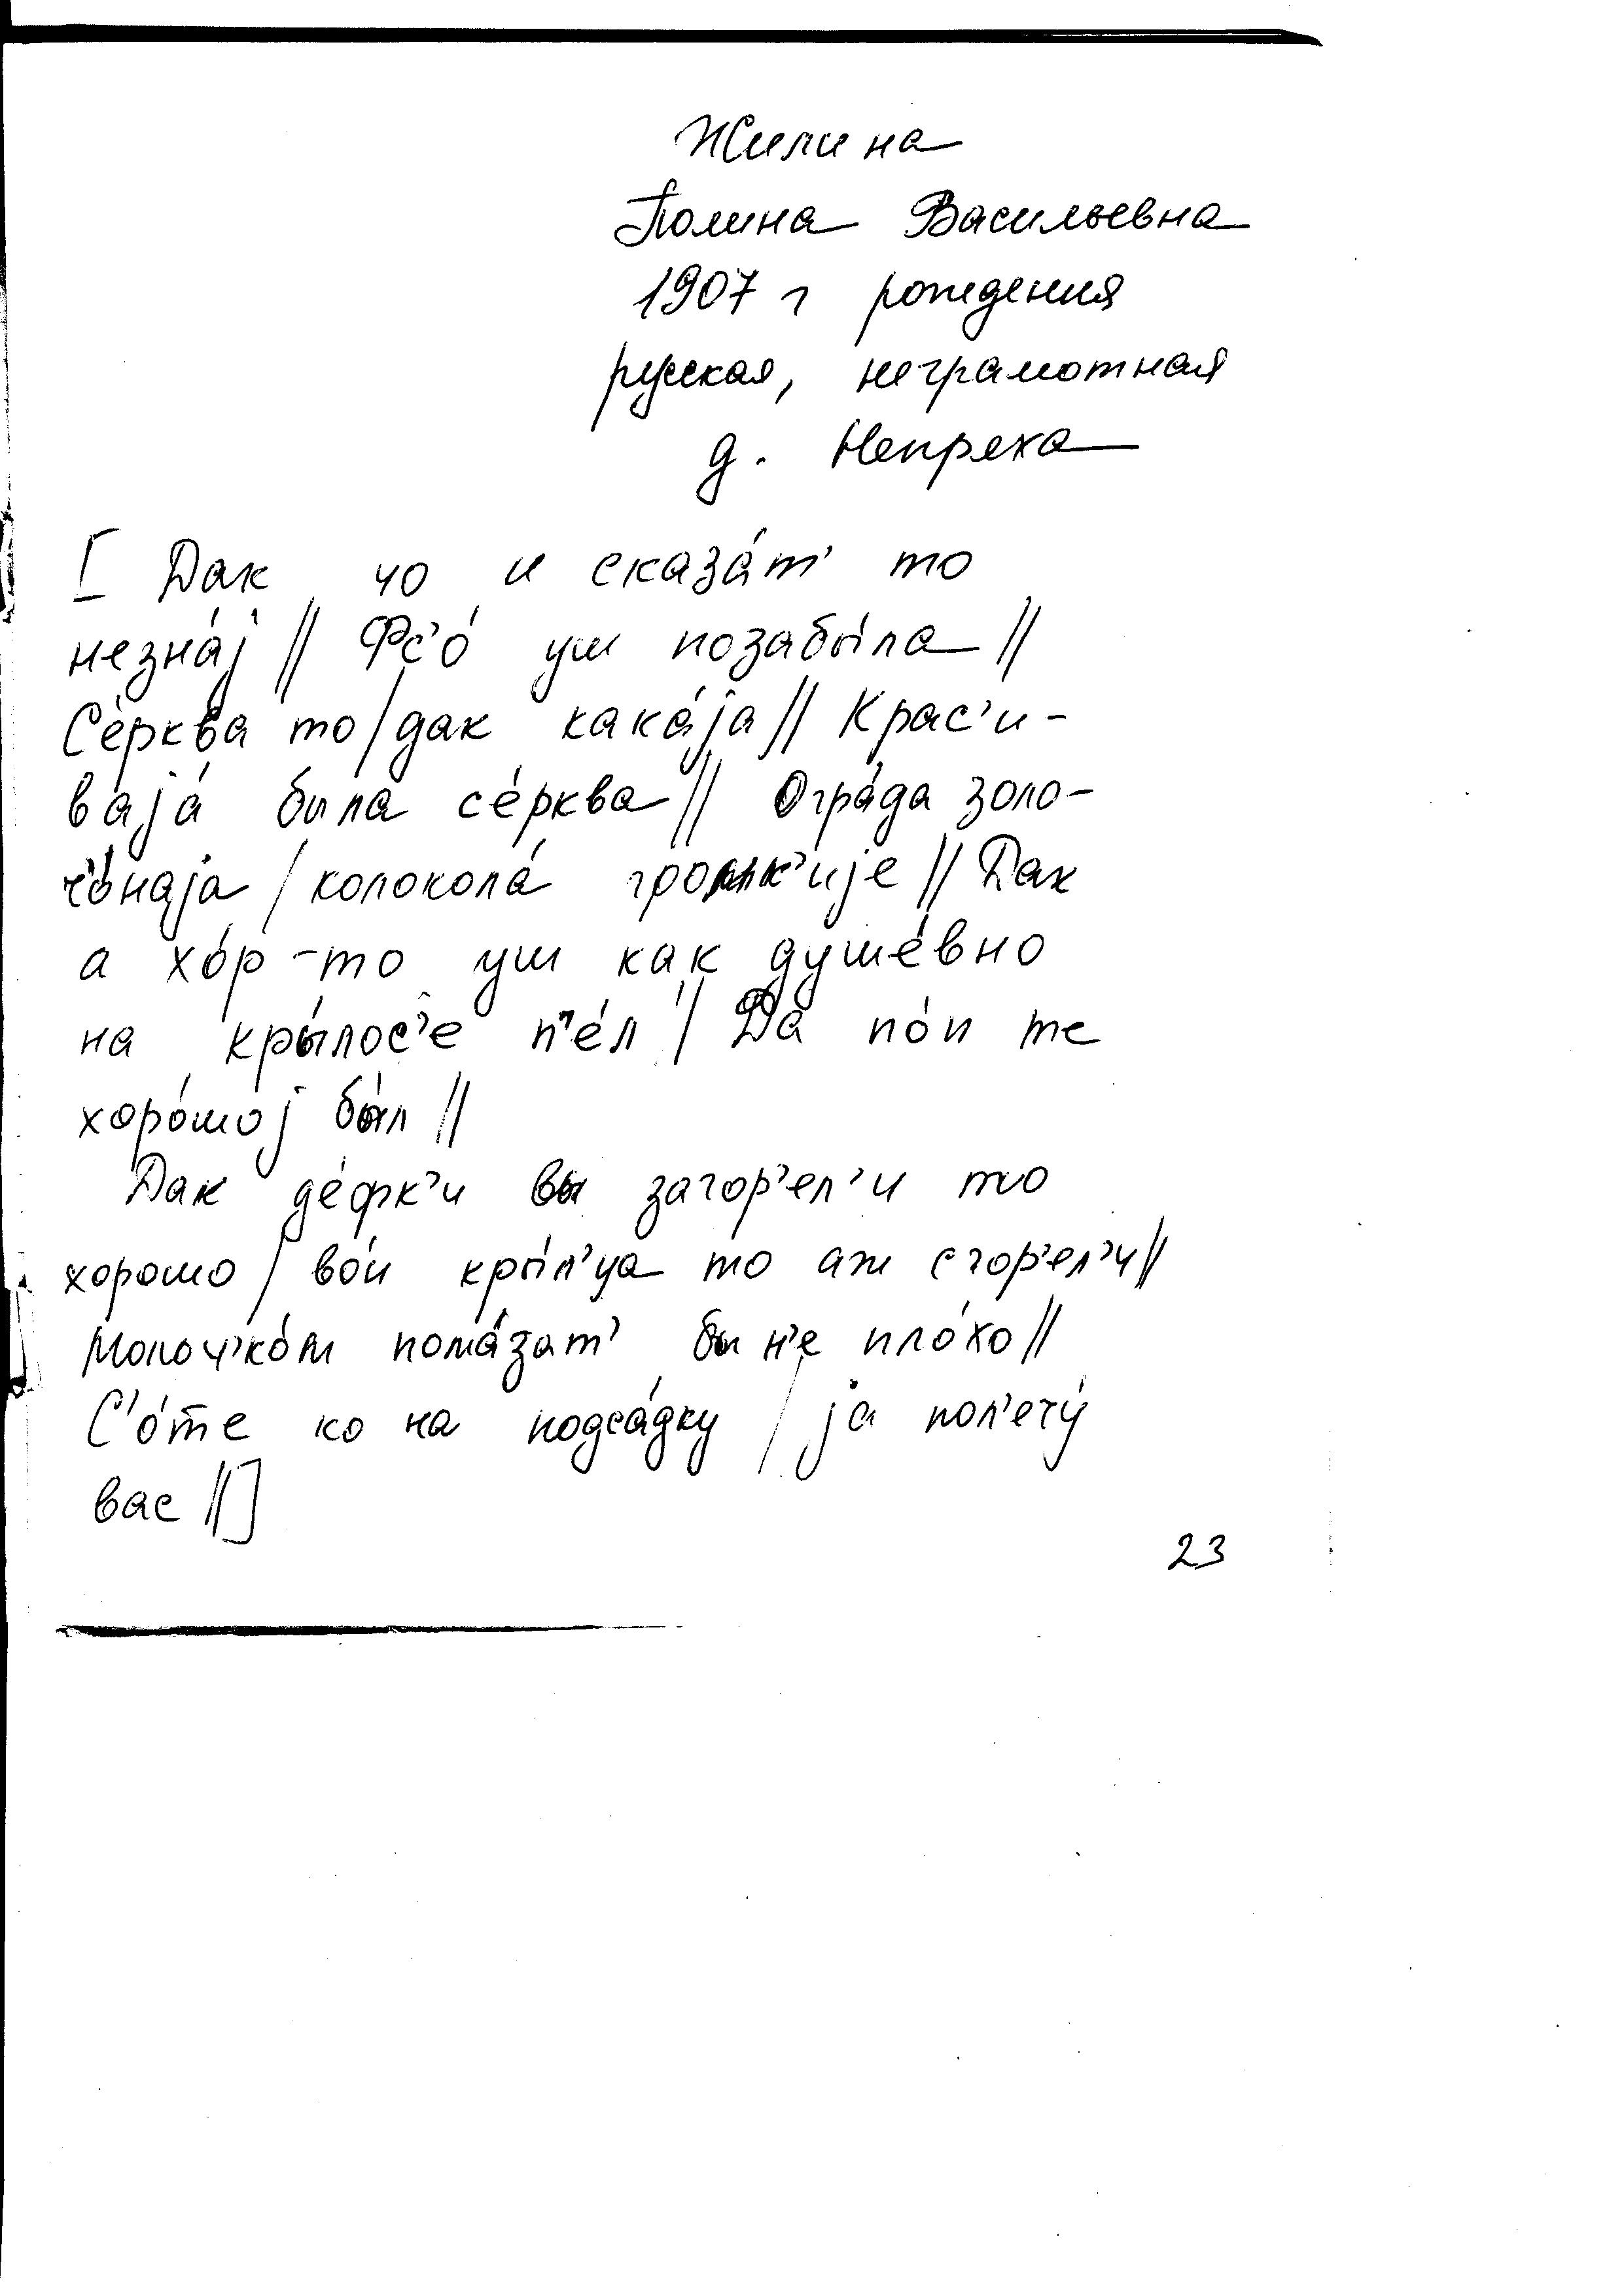 Жилина
Полина Васильевна
1907 г рождения
русская, неграмотная
д. Непряха
[ Дак чо и сказа́т' то
незна́j // Фс'о́ уш позабы́ла //
Се́рква то / дак кака́jа // Крас'и-
ваjа́ была се́рква // Огра́да золо-
ч'о́наjа / колокола́ громк'иjе // Дак
а хо́р-то уш как душе́вно
на кры́лос'е п'е́л / Да по́п же
хоро́шоj бы́л //
Дак де́фк'и вы загор'ел'и то
хорошо / во́н кры́л'ца то аж сгор'ел'и //
Молоч'ко́м пома́зат' бы н'е пло́хо //
С'о́те ко на подса́дку / jа пол'ечу́
вас // ]
23